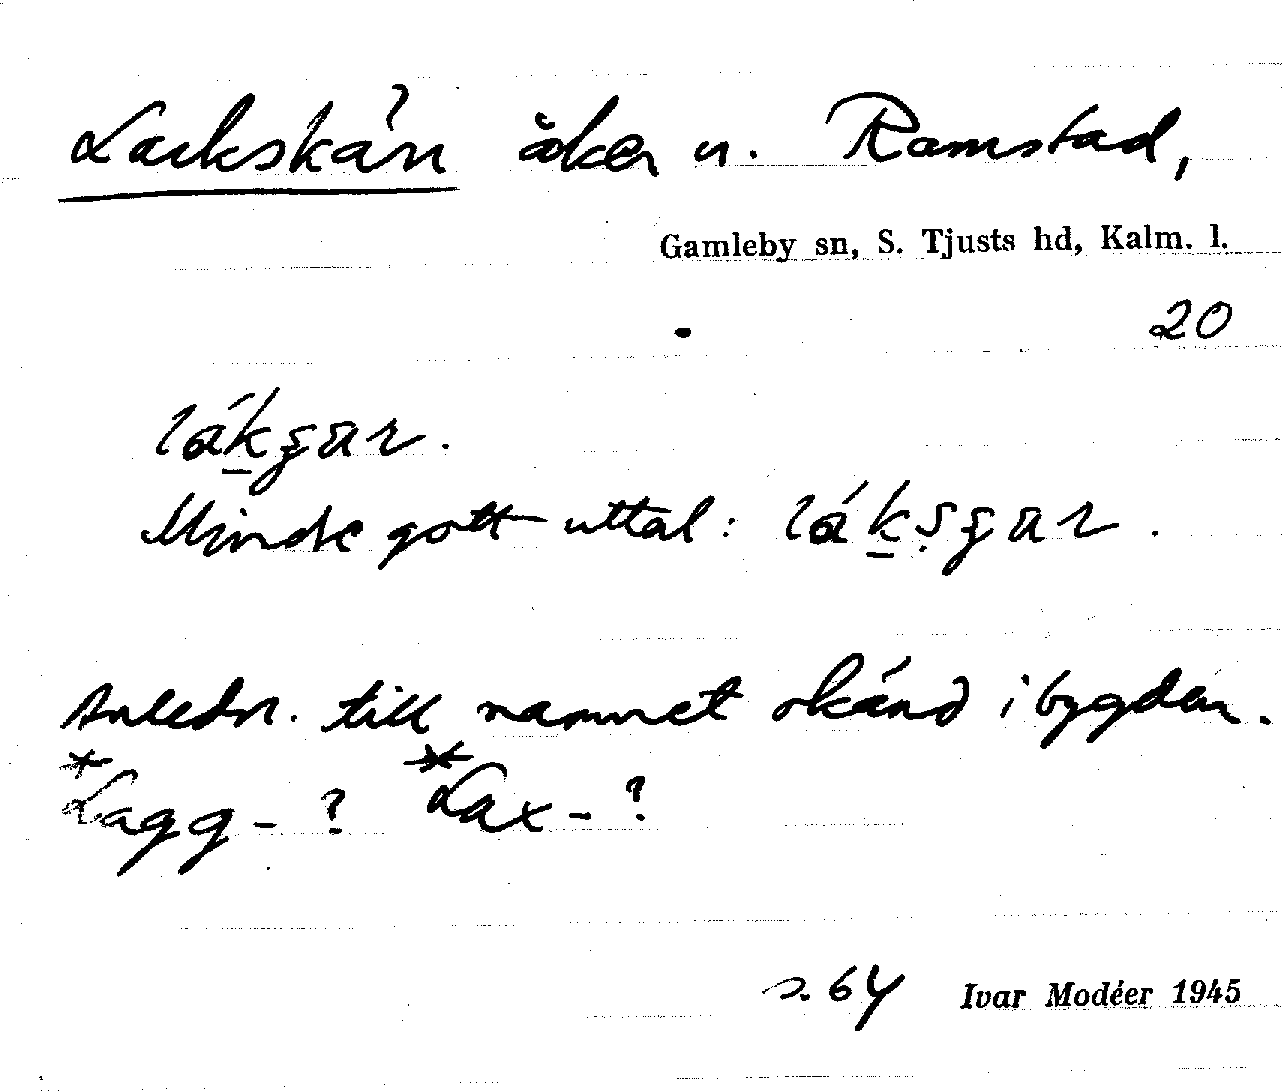 Lackskån åker u. Ramstad,
Gamleby sn, S. Tjusts hd, Kalm. l.
20
Mindre gott uttal:
Anledn. till namnet okänd i bygden.
*Lagg-? *Lax-?
s. 64 Ivar Modéer 1945